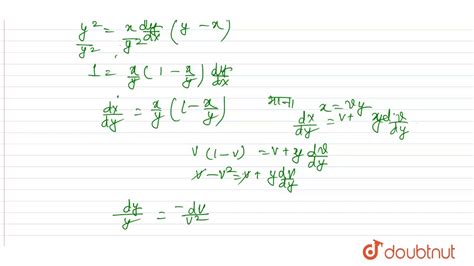 y²/y² = x/y² dy/dx (y - x)
1 = x/y (1 - x/y) dy/dx
dx/dy = x/y (1 - x/y) माना x = vy
dx/dy = v + y dv/dy
v (1-v) = v + y dv/dy
v - v² = v + y dv/dy
dy/y = -dv/v²
doubtnut